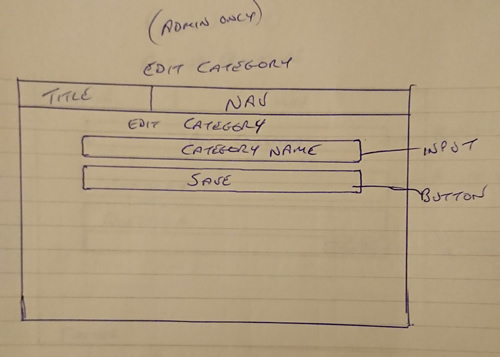 (ADMIN ONLY)
EDIT CATEGORY
TITLE NAV
EDIT CATEGORY
CATEGORY NAME
INPUT
SAVE
BUTTON